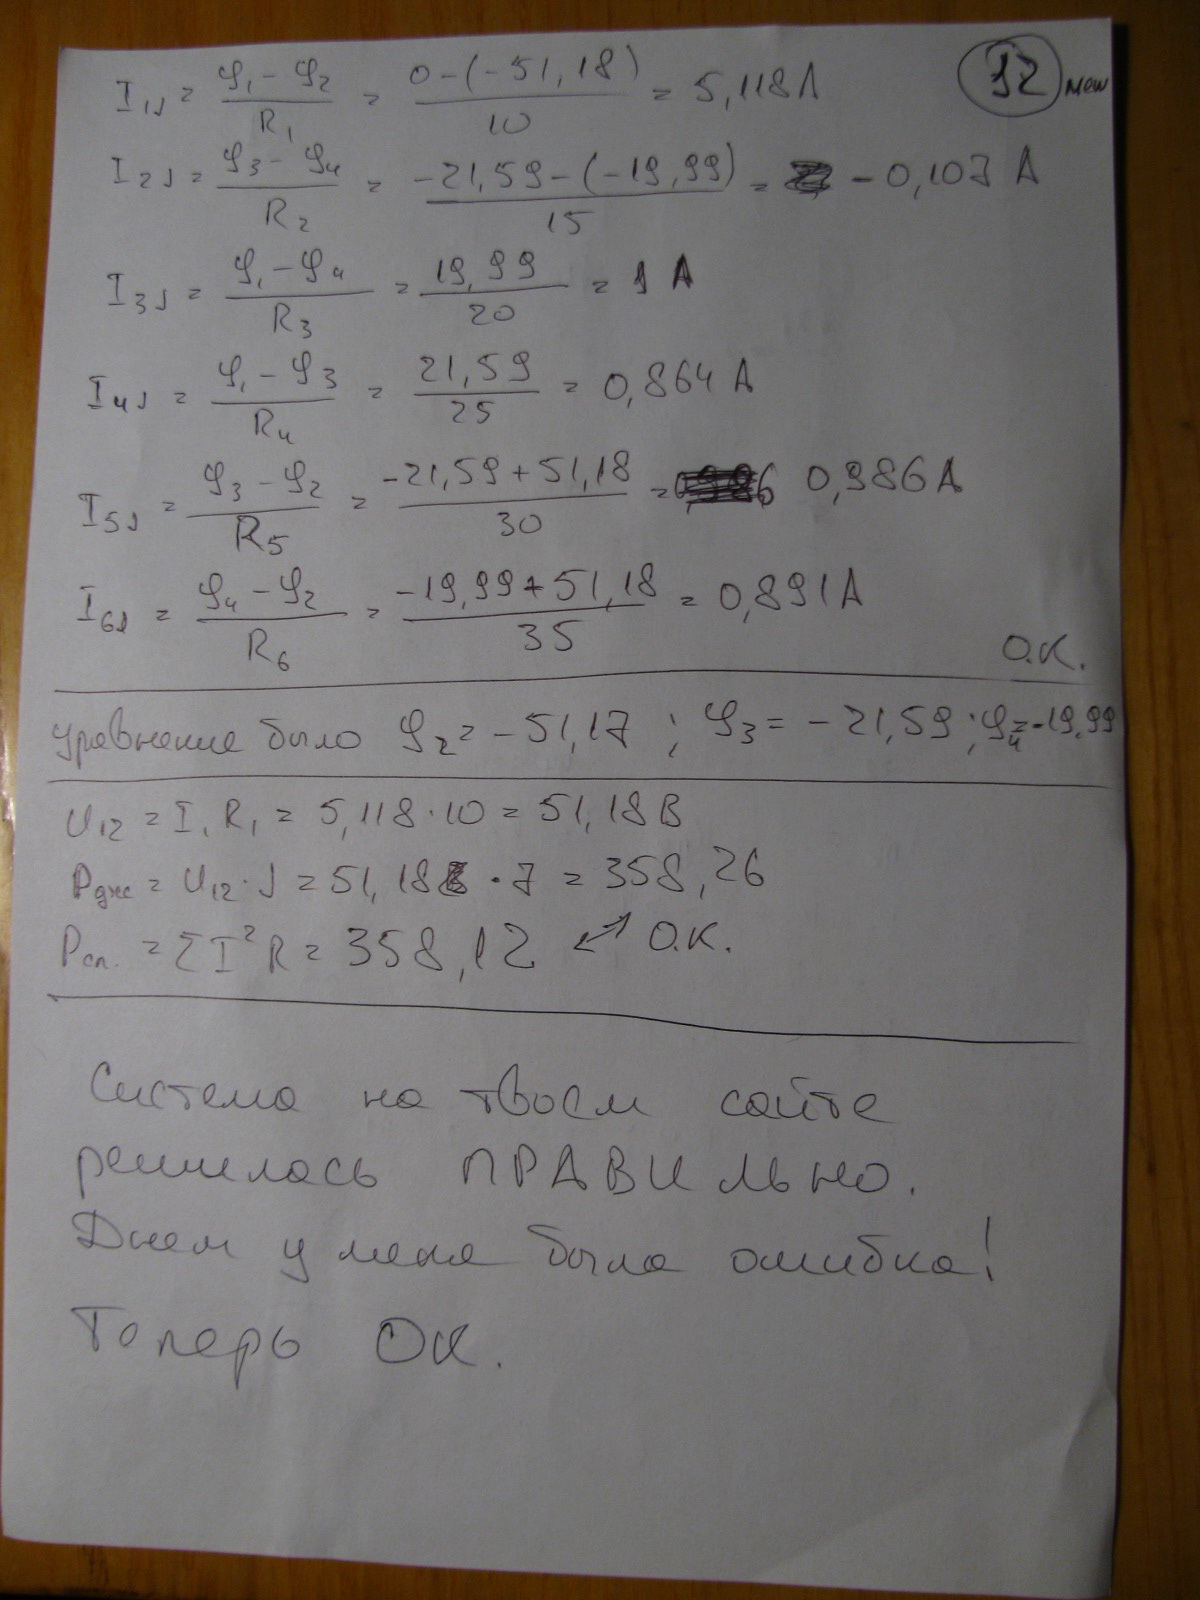 12 new
I₁J = (φ₁ − φ₂)/R₁ = (0 − (−51,18))/10 = 5,118 А
I₂J = (φ₃ − φ₄)/R₂ = (−21,59 − (−19,99))/15 = − 0,107 А
I₃J = (φ₁ − φ₄)/R₃ = 19,99/20 = 1 А
I₄J = (φ₁ − φ₃)/R₄ = 21,59/25 = 0,864 А
I₅J = (φ₃ − φ₂)/R₅ = (−21,59 + 51,18)/30 = 0,986 А
I₆J = (φ₄ − φ₂)/R₆ = (−19,99 + 51,18)/35 = 0,891 А
О.К.
уравнение было φ₂ = −51,17 ; φ₃ = −21,59 ; φ₄ = −19,99
U₁₂ = I₁ R₁ = 5,118 · 10 = 51,18 В
Pдж = U₁₂ · J = 51,18 · 7 = 358,26
Pсп. = Σ I² R = 358,12 ↔ О.К.
Система на твоем сайте
решилась ПРАВИльно.
Днем у меня была ошибка!
Теперь ОК.